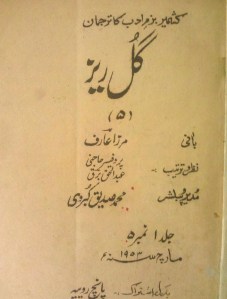 کشمیر بزمِ ادب کا ترجمان
گُل ریز
(۵)
بانی مرزا عارف
نظر و ترتیب پروفیسر حاجنی
عبدالحق برق
مدیر مجلس محمد صدیق کبروی
جلد ۱ نمبر ۵
مارچ ۱۹۵۳ء
پانچ روپیہ